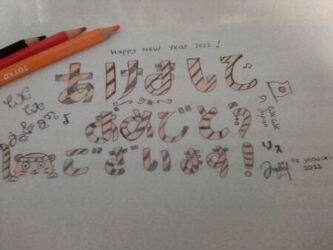 JOYKO
Happy New Year 2022 !
あけまして
おめでとう
ございます!
Japan
リス
January
2022